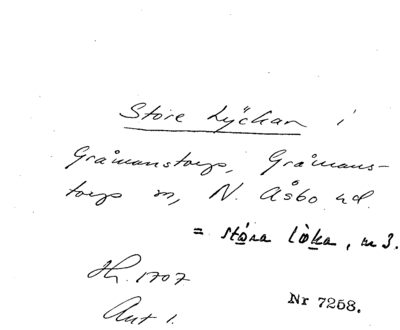 Store Lyckan i
Gråmanstorps, Gråmans-
torps sn, N. Åsbo hd.
= stóra lòka, n 3.
Jb. 1707
Ant 1.
Nr 7258.